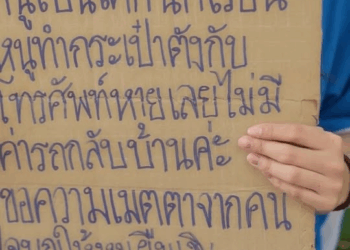 หนูเป็นเด็กนักเรียน
หนูทำกระเป๋าตังกับ
โทรศัพท์หายเลยไม่มี
ค่ารถกลับบ้านค่ะ
ขอความเมตตาจากคน